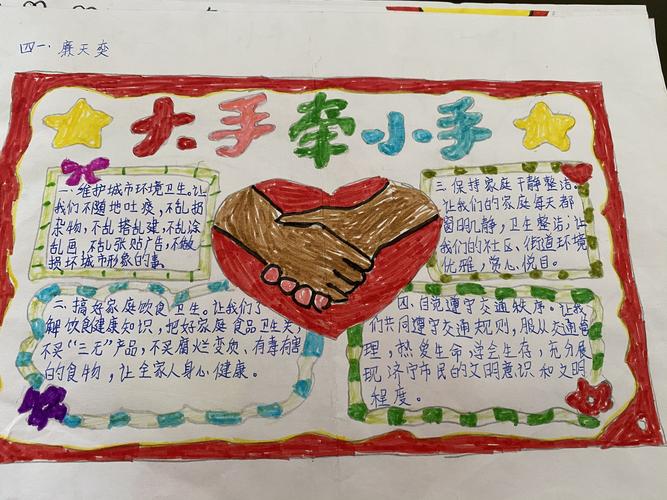 四一. 廉天奕
大手牵小手
一、维护城市环境卫生。让
我们不随地吐痰，不乱扔
杂物，不乱搭乱建，不乱涂
乱画，不乱张贴广告，不做
损坏城市形象的事。
三. 保持家庭干净整洁。
让我们的家庭每天都
窗明几静，卫生整洁；让
我们的社区、街道环境
优雅，赏心悦目。
二、搞好家庭饮食卫生。让我们了
解饮食健康知识，把好家庭食品卫生关，
不买“三无”产品，不买腐烂变质、有毒有害
的食物，让全家人身心健康。
四. 自觉遵守交通秩序。让我
们共同遵守交通规则，服从交通管
理，热爱生命，学会生存，充分展
现济宁市民的文明意识和文明
程度。